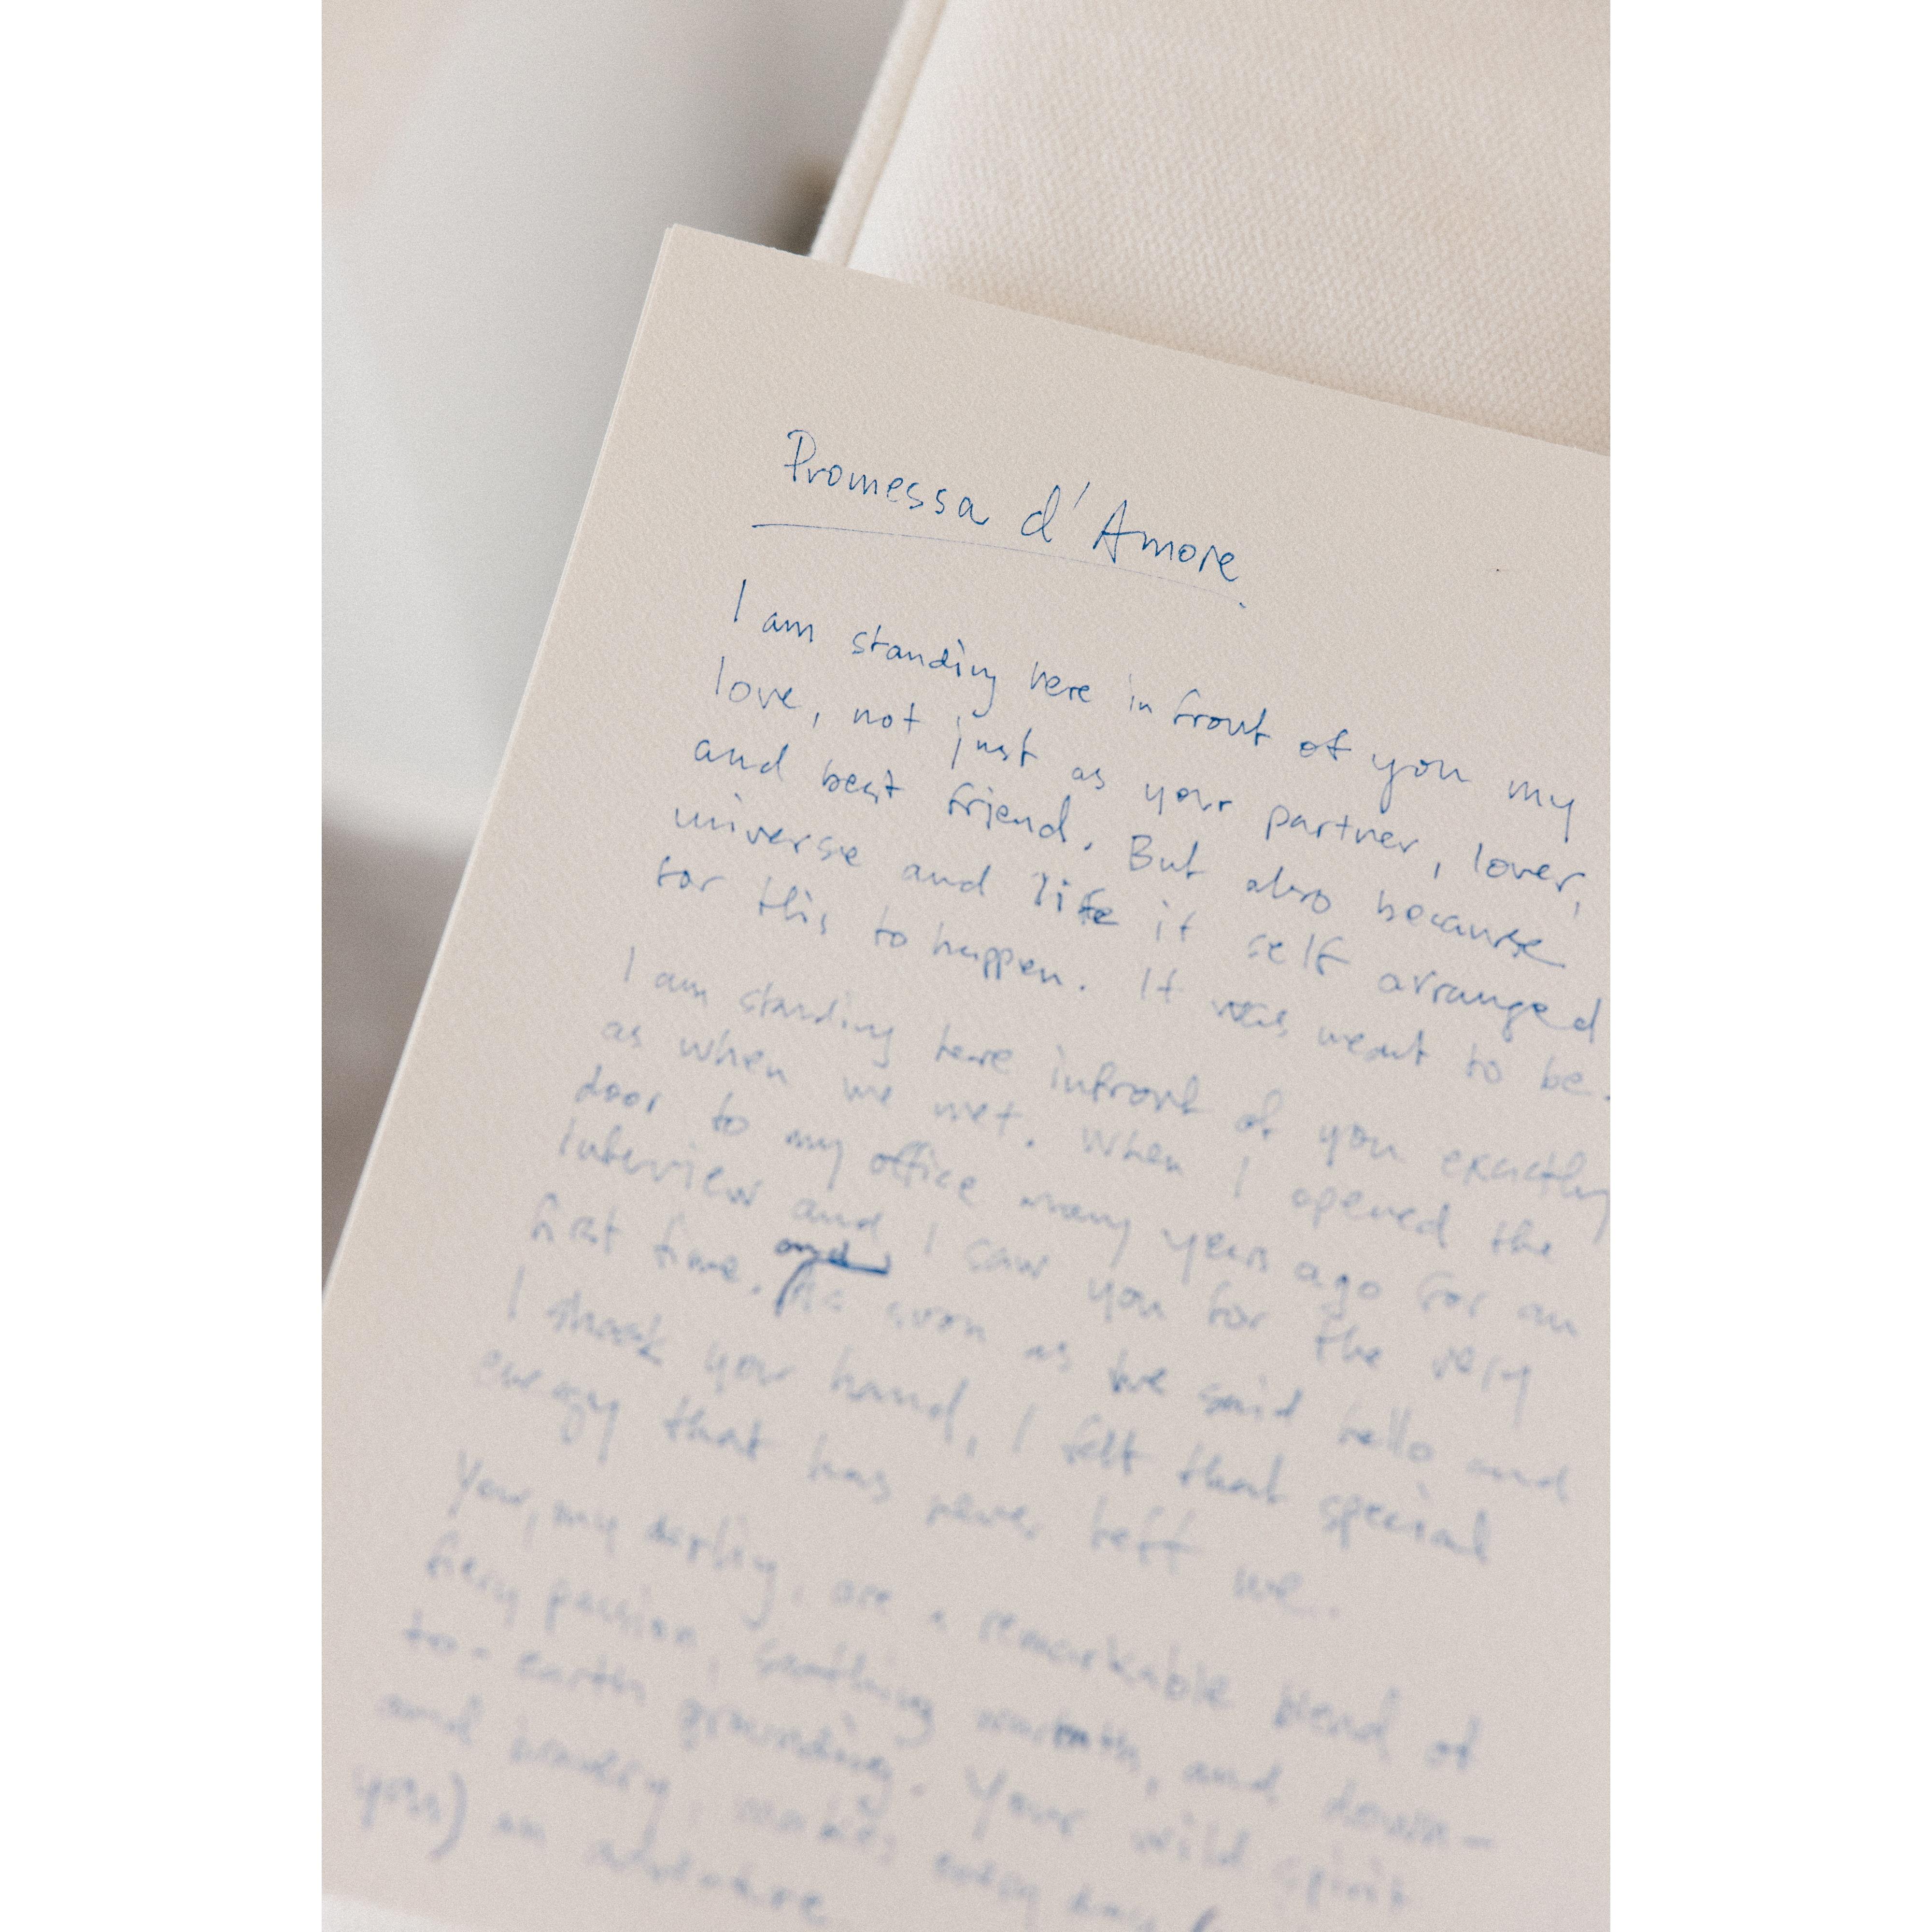 Promessa d'Amore
I am standing here in front of you my
love, not just as your partner, lover,
and best friend. But also because
universe and life it self arranged
for this to happen. It was meant to be.
I am standing here infront of you exactly
as when we met. When I opened the
door to my office many years ago for an
interview and I saw you for the very
first time. and As soon as we said hello and
I shook your hand, I felt that special
energy that has never left me.
You, my darling, are a remarkable blend of
fiery passion, soothing warmth, and down-
to-earth grounding. Your wild spirit
and bravery, makes every day
you) an adventure